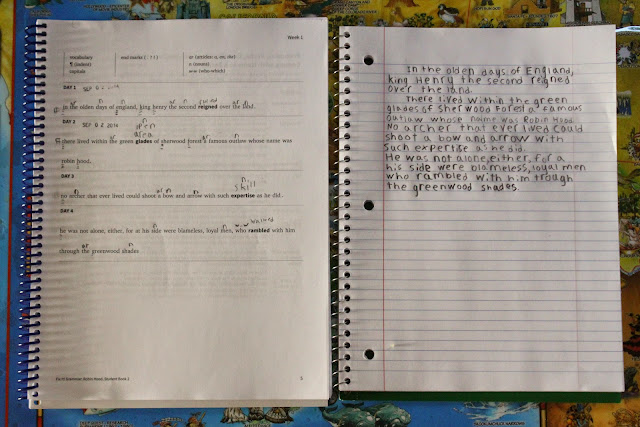 Week 1
vocabulary end marks ( . ? ! ) ar (articles: a, an, the)
¶ (indent) n (nouns)
capitals w-w (who-which)
DAY 1
SEP 0 2014
ar n n ar n
in the olden days of england, king henry the second reigned over the land.
DAY 2
SEP 02 2014
n
open
area
there lived within the green glades of sherwood forest a famous outlaw whose name was
robin hood.
DAY 3
n
skill
no archer that ever lived could shoot a bow and arrow with such expertise as he did.
DAY 4
he was not alone, either, for at his side were blameless, loyal men, who rambled with him
through the greenwood shades
Fix It! Grammar: Robin Hood, Student Book 1
5
In the olden days of England,
King Henry the second reigned
over the land.
There lived within the green
glades of Sherwood Forest a famous
outlaw whose name was Robin Hood.
No archer that ever lived could
shoot a bow and arrow with
such expertise as he did.
He was not alone, either, for a
his side were blameless, loyal men
who rambled with him trough
the greenwood shades.